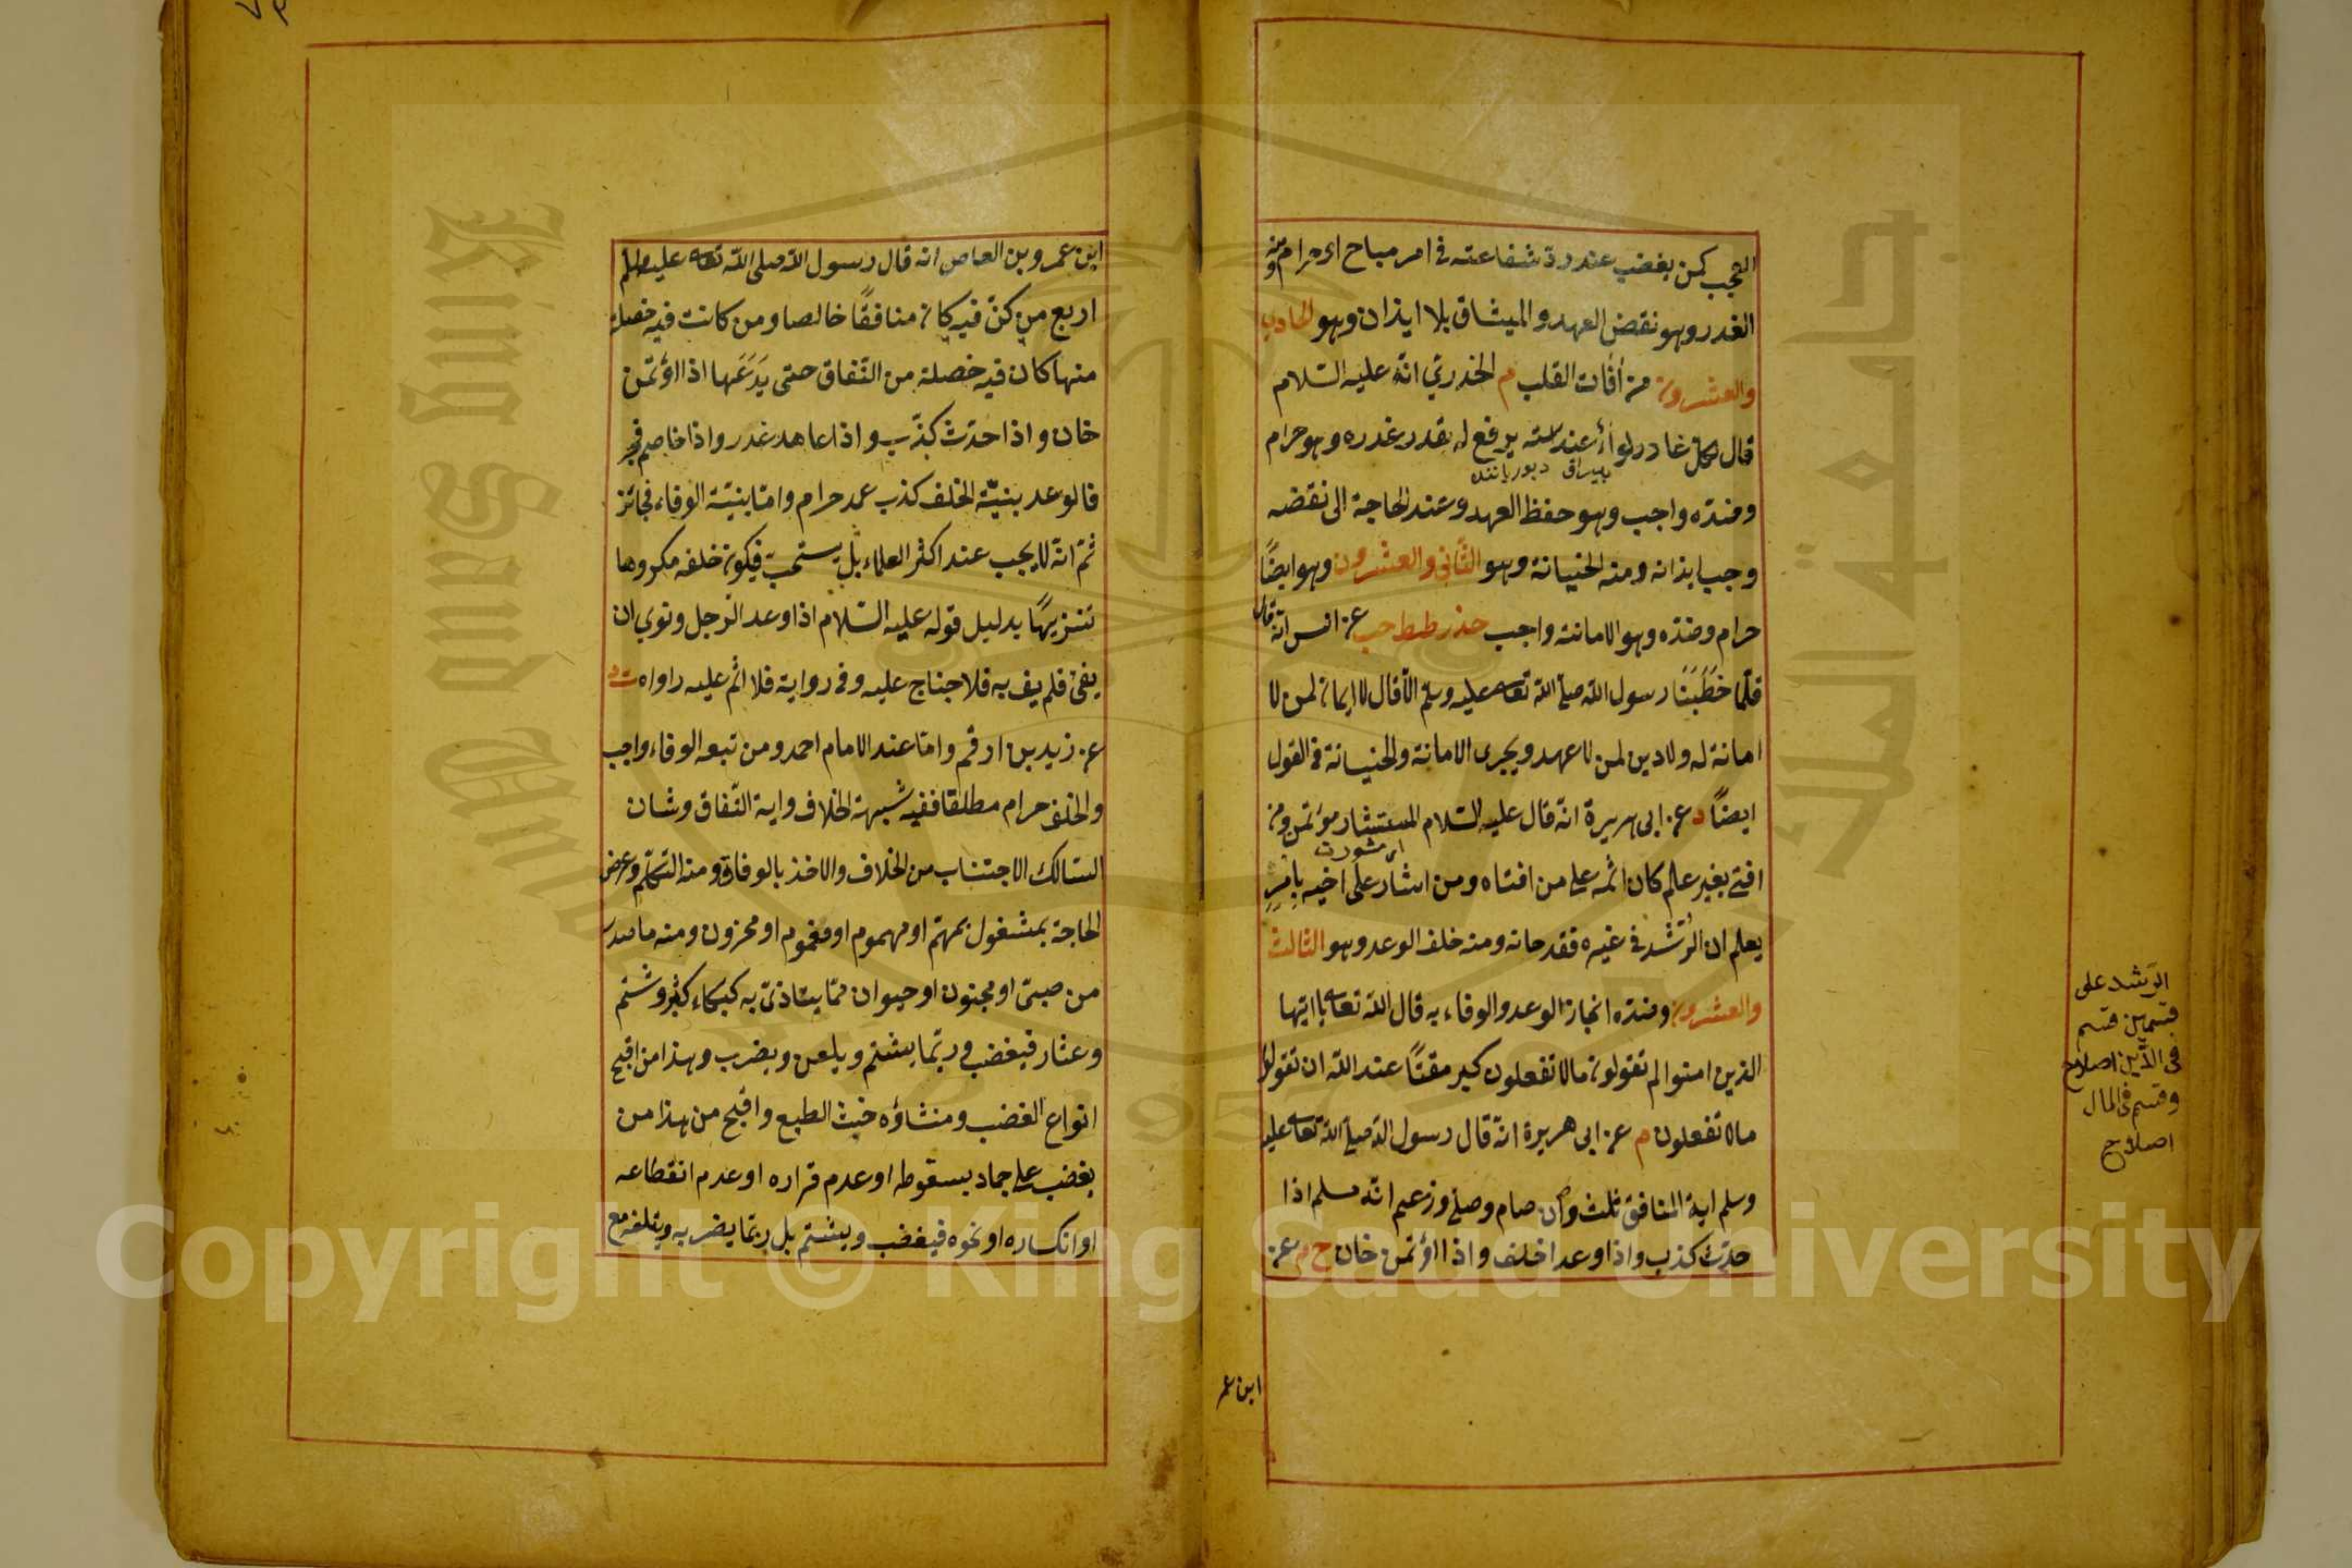 العجب كمن يغضب عند رد شفاعته في امر مباح او حرام ومنه
الغدر وهو نقض العهد والميثاق بلا ايذان وهو الحادي
والعشرون من آفات القلب م الخدري انه عليه السلام
قال لكل غادر لواء عند استه يرفع له بقدر غدره وهو حرام
بيراق
وضده واجب وهو حفظ العهد وعند الحاجة الى نقضه
وجب ايذانه ومنه الخيانة وهو الثاني والعشرون وهو ايضًا
حرام وضده وهو الامانة واجب حذر طط حب عن انس انه قال
قلما خَطَبَنَا رسول الله صلى الله تعالى عليه وسلم الا قال لا ايمان لمن لا
امانة له ولا دين لمن لا عهد ويجرى الامانة والخيانة في القول
ايضًا د عن ابى هريرة انه قال عليه السلام المستشار مؤتمن ومن
اى مشورت
افتى بغير علم كان اثمه على من افتاه ومن اشار على اخيه بامرٍ
يعلم ان الرُشد في غيره فقد خانه ومنه خلف الوعد وهو الثالث
والعشرون وضده انجاز الوعد والوفاء به قال الله تعالى يا ايها
الذين امنوا لم تقولون مالا تفعلون كبر مقتًا عند الله ان تقولوا
مالا تفعلون م عن ابى هريرة انه قال رسول الله صلى الله تعالى عليه
وسلم اية المنافق ثلث وان صام وصلى وزعم انه مسلم اذا
حدث كذب واذا وعد اخلف واذا اؤتمن خان خ م عن
ابن عمر
الرَشد على
قسمين قسم
في الدّين اصلاح
وقسم في المال
اصلاح
ابن عمرو بن العاص انه قال رسول الله صلى الله تعالى عليه وسلم
اربع من كنّ فيه كان منافقًا خالصا ومن كانت فيه خصلة
منها كان فيه خصلة من النّفاق حتى يَدَعَها اذا اؤتمن
خان واذا حدّث كذّب واذا عاهد غدر واذا خاصم فجر
فالوعد بنيّة الخلف كذب عمد حرام وامّا بنيّة الوفاء فجائز
ثمّ انّه لا يجب عند اكثر العلماء بل يستحب فيكون خلفه مكروها
تنزيهًا بدليل قوله عليه السّلام اذا وعد الرّجل ونوى ان
يفي فلم يف به فلا جناح عليه وفى رواية فلا اثم عليه رواه ت د
عن زيد بن ارقم وامّا عند الامام احمد ومن تبعه الوفاء واجب
والخلف حرام مطلقا ففيه شبهة الخلاف واية النّفاق وشان
السّالك الاجتناب من الخلاف والاخذ بالوفاق ومنه التكلّم وعرض
الحاجة بمشغول بمهمّ او مهموم او مغموم او محزون ومنه ما صدر
من صبىّ او مجنون او حيوان ممّا يتأذّى به كبكاء كثير وشتم
وعثار فيغضب وربّما يشتم ويلعن ويضرب وهذا من اقبح
انواع الغضب ومنشاؤه خبث الطبع واقبح من هذا من
يغضب على جماد بسقوطه او عدم قراره او عدم انقطاعه
او انكساره او نحوه فيغضب ويشتم بل ربّما يضربه ويتلفه مع
King Saud University
جامعة الملك
1957
Copyright © King Saud University